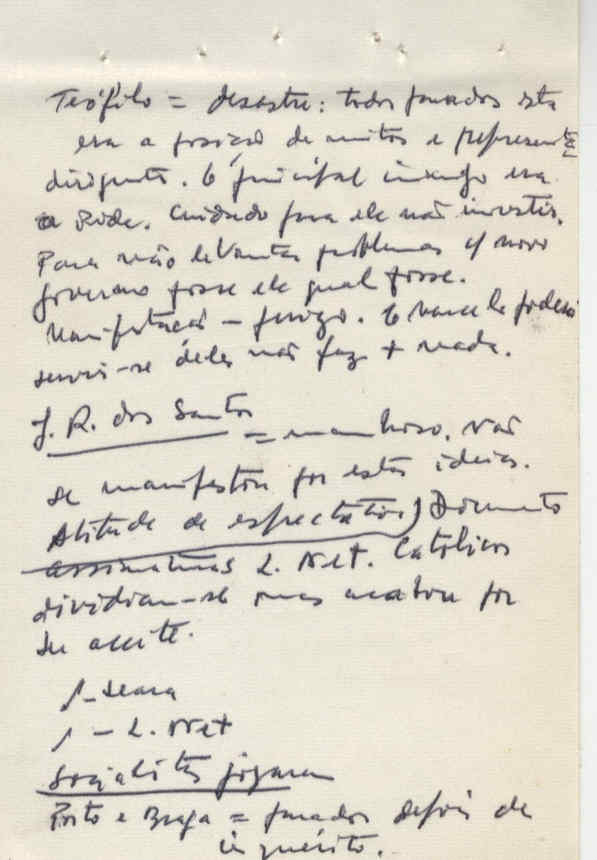 Teófilo = desastre: todos parados esta
era a posição de muitos e representa
dirigente. O principal inimigo era
a Rode. Cuidado para ele não investir.
Para não levantar problemas c/ novo
governo fosse ele qual fosse.
Manifestação – perigo. O Marcelo poderá
servir-se deles não faz + nada.
J. R. dos Santos
= manhoso. Não
se manifestou por estas ideias.
Atitude de espectativa) Documento
assinaturas L. Net. Católicos
dividiam-se mas acabou por
ser aceite.
1 – Seara
1 – L. Net
Socialistas jogaram
Porto e Braga = parados depois de
inquérito.